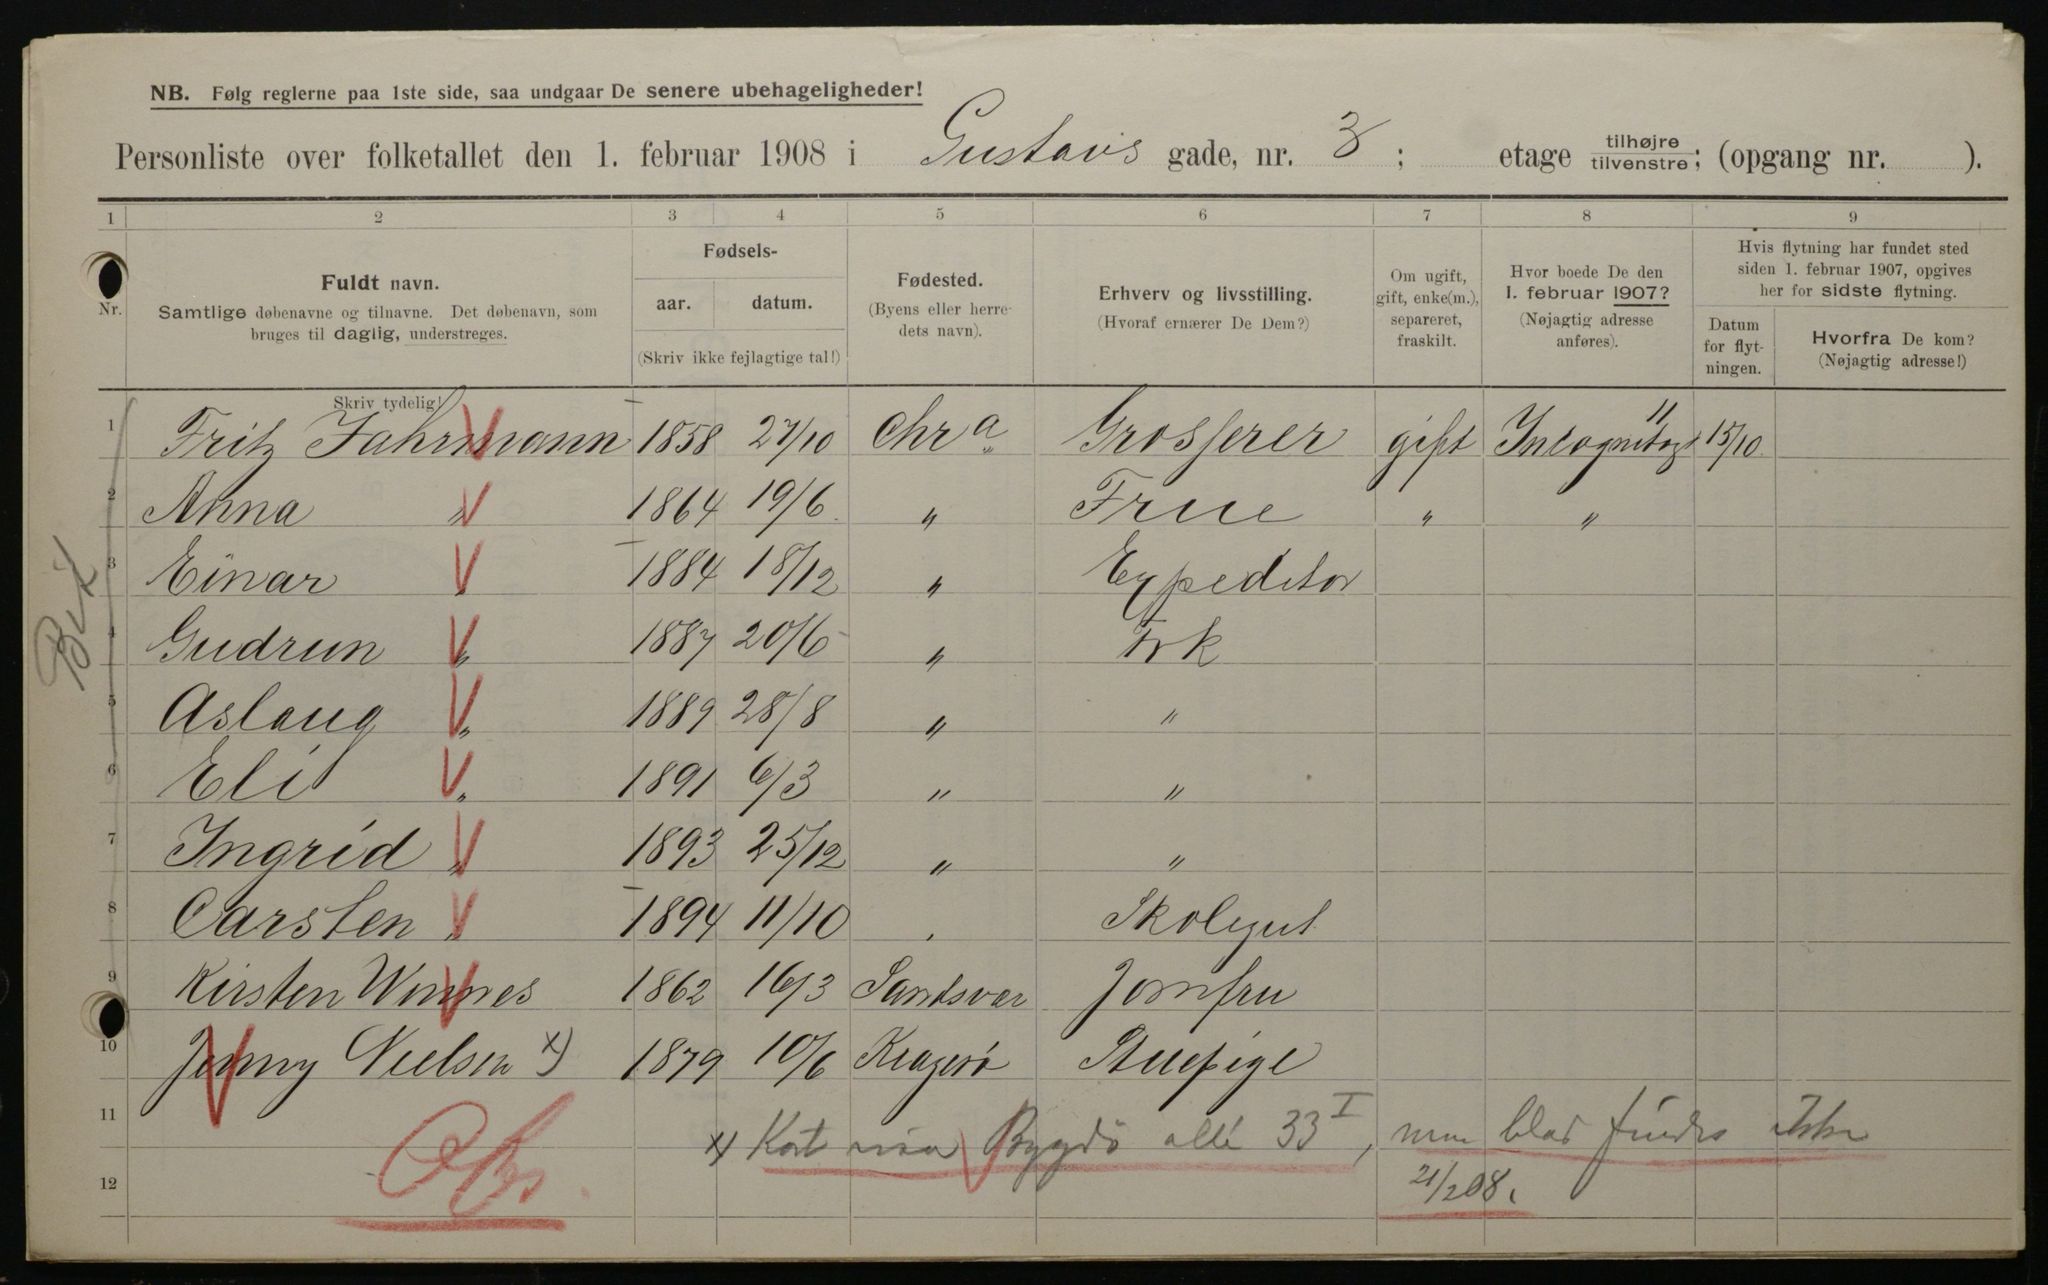 NB. Følg reglerne paa 1ste side, saa undgaar De senere ubehageligheder!
Personliste over folketallet den 1. februar 1908 i Gustavs gade, nr. 3; etage tilhøjre tilvenstre; (opgang nr. ).
1 2 3 4 5 6 7 8 9
Nr.
Fuldt navn.
Samtlige døbenavne og tilnavne. Det døbenavn, som
bruges til daglig, understreges.
Skriv tydelig!
Fødsels-
aar. datum.
(Skriv ikke fejlagtige tal!)
Fødested.
(Byens eller herre-
dets navn).
Erhverv og livsstilling.
(Hvoraf ernærer De Dem?)
Om ugift,
gift, enke(m.),
separeret,
fraskilt.
Hvor boede De den
1. februar 1907?
(Nøjagtig adresse
anføres).
Hvis flytning har fundet sted
siden 1. februar 1907, opgives
her for sidste flytning.
Datum
for flyt-
ningen.
Hvorfra De kom?
(Nøjagtig adresse!)
1 Fritz Fahrmann 1858 27/10 Chr a Grosserer gift Incognitogt 11 15/10
2 Anna " 1864 19/6 " Frue " "
3 Einar " 1884 18/12 " Expeditor
4 Gudrun " 1887 20/6 " Frk
5 Aslaug " 1889 28/8 " "
6 Eli " 1891 6/3 " "
7 Ingrid " 1893 25/12 " "
8 Carsten " 1894 11/10 " Skolegut
9 Kirsten Winnes 1862 16/3 Sandsvær Jomfru
10 Jenny Nielsen x) 1879 10/6 Kragerø Stuepige
11 x) Kort viser Bygdø allé 33 I, men blad findes ikke
12 Obs. 21/2 08.